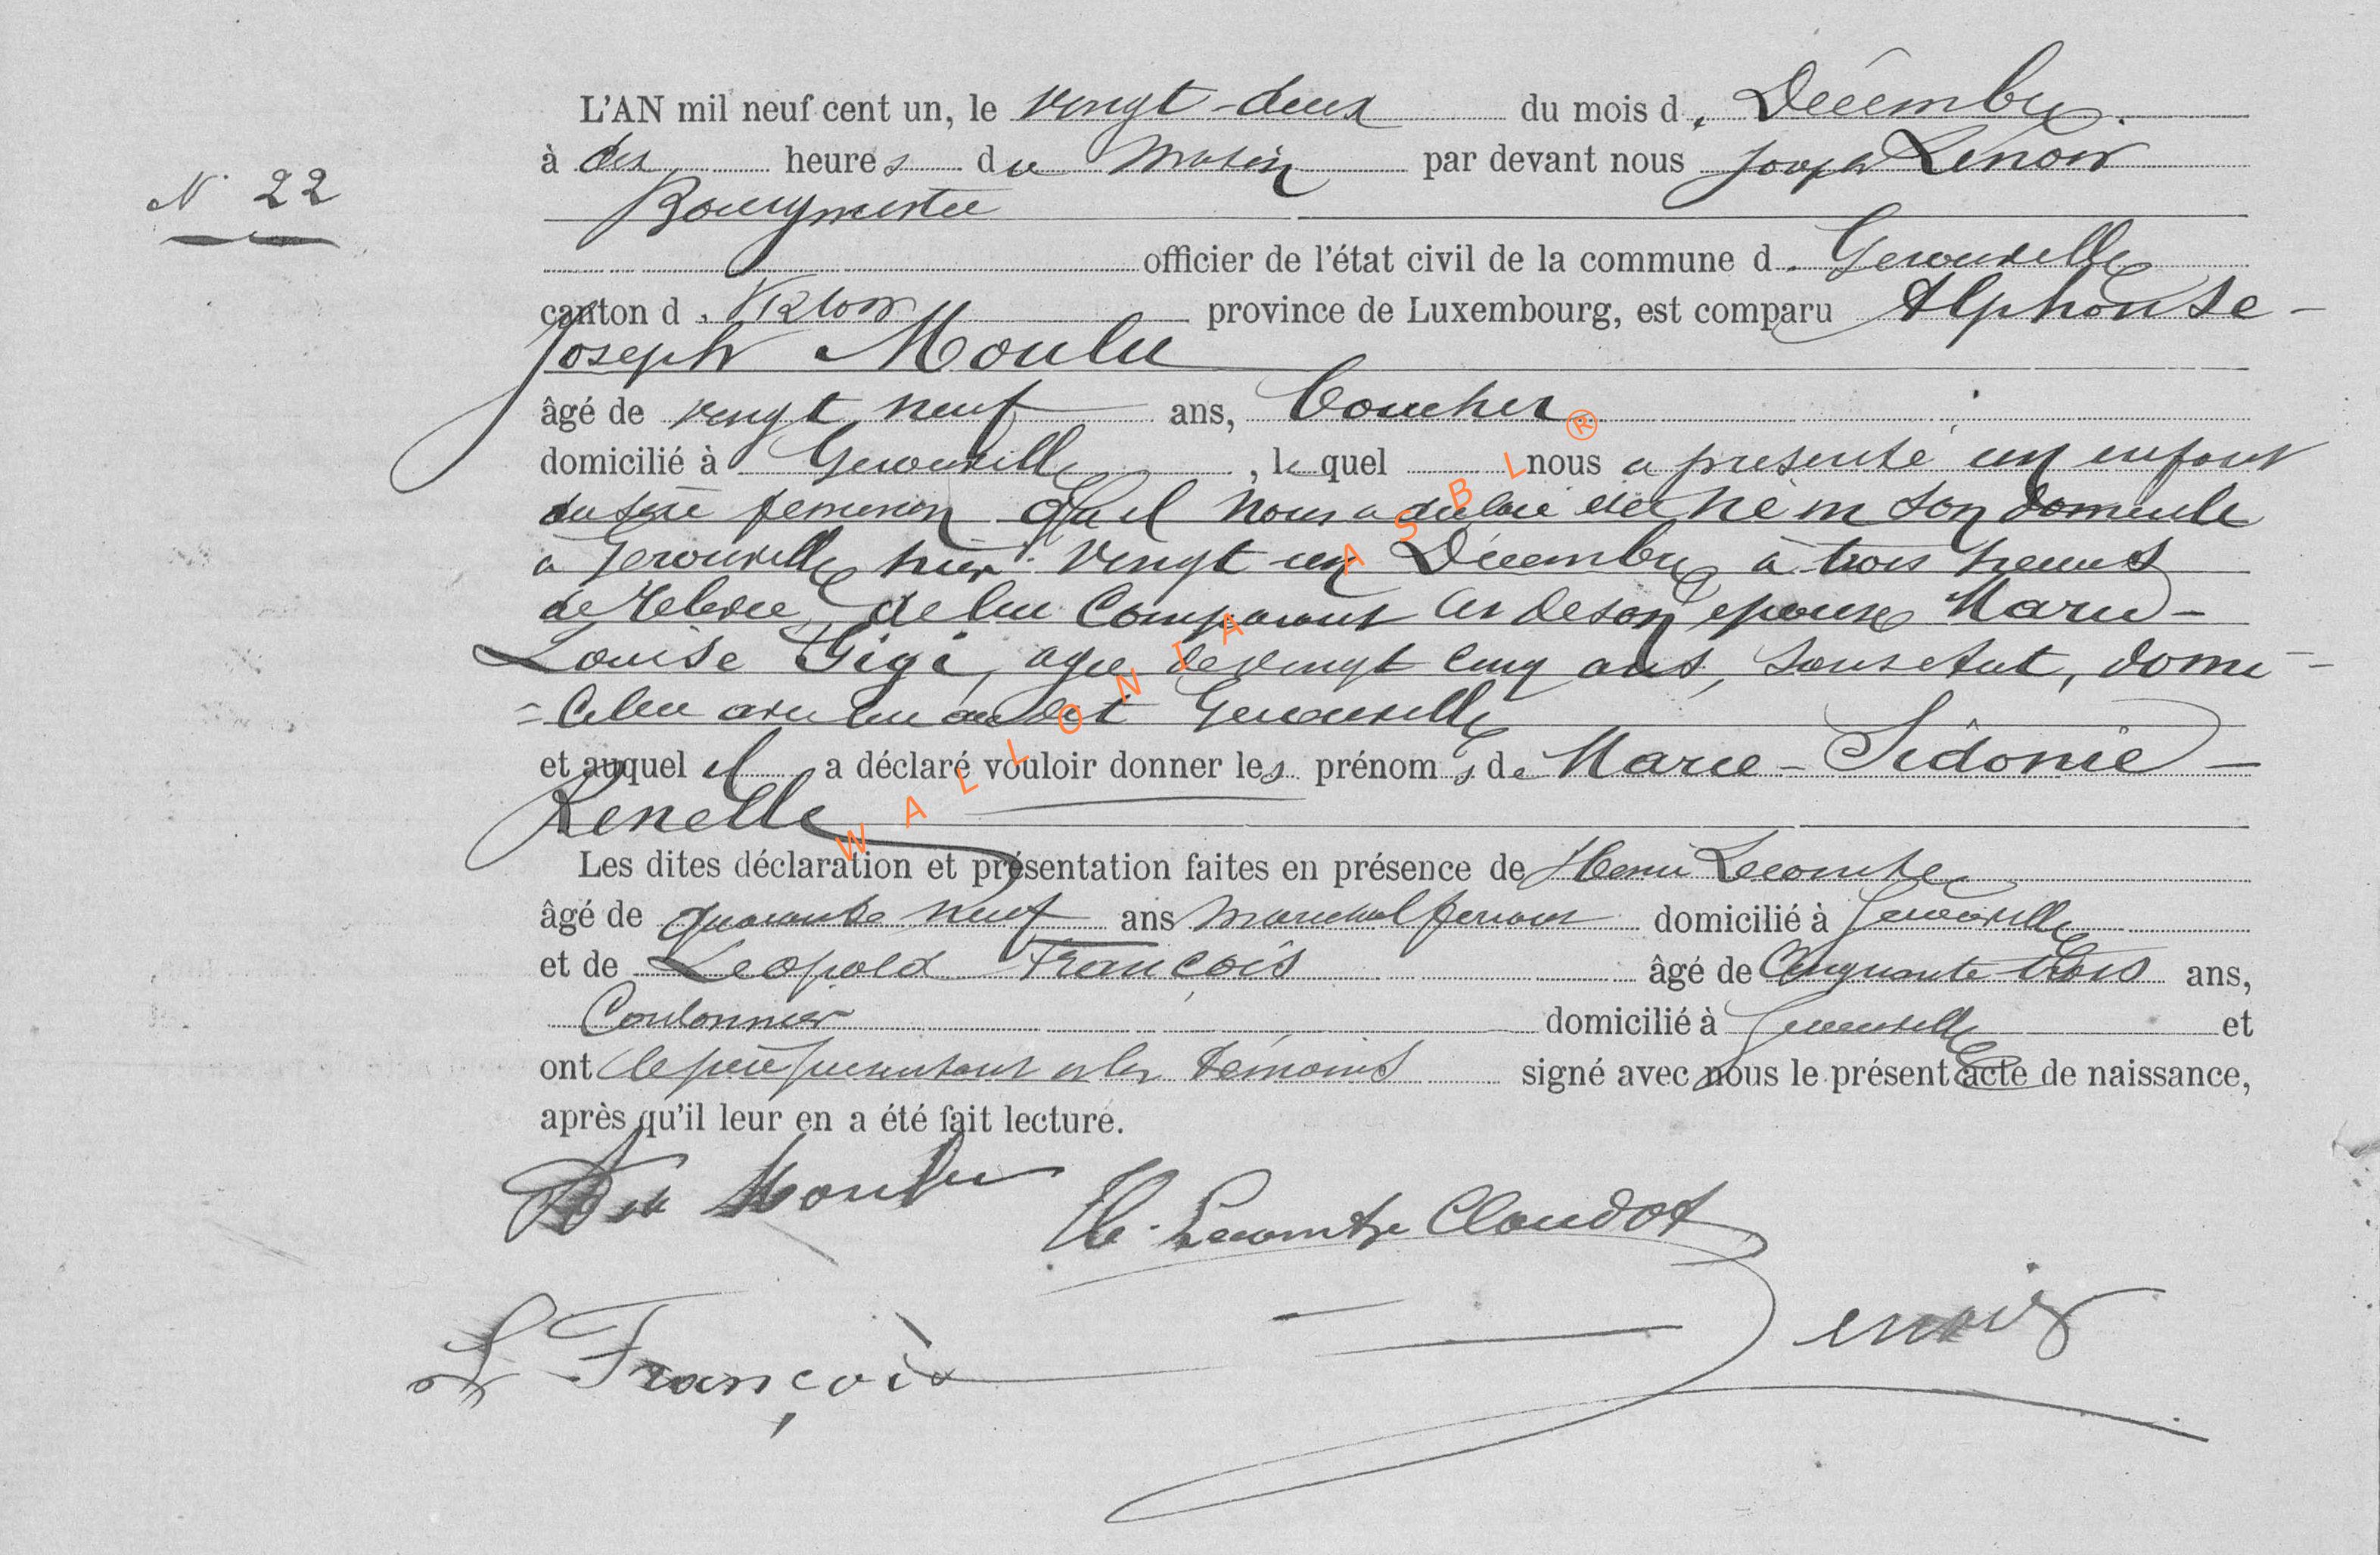 N° 22
L'AN mil neuf cent un, le vingt-deux du mois d. Décembre.
à dix heures du matin par devant nous Joseph Lenoir
Bourgmestre
officier de l'état civil de la commune d. Gerouville
canton d. Virton province de Luxembourg, est comparu Alphonse-
Joseph Moulu
âgé de vingt neuf ans, boucher
domicilié à Gerouville, lequel nous a présenté un enfant
du sexe feminin qu'il nous a déclaré être né en son domicile
à Gerouville hier vingt un Décembre à trois heures
de relevée, de lui comparant et de son epouse Marie-
Louise Gigi, agée de vingt cinq ans, sans etat, domi-
=ciliée avec lui au dit Gerouville
et auquel il a déclaré vouloir donner les prénoms de Marie-Sidonie-
Renelle
Les dites déclaration et présentation faites en présence de Henri Lecomte
âgé de quarante neuf ans marechal ferrant domicilié à Gerouville
et de Leopold François âgé de cinquante trois ans,
domicilié à Gerouville et
ont le père présentant et les témoins signé avec nous le présent acte de naissance,
après qu'il leur en a été fait lecture.
Moulu H. Lecomte Claudot
L François Lenoir
WALLONIA ASBL ®